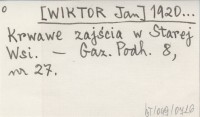 [WIKTOR Jan] 1920...
Krwawe zajścia w Starej
Wsi. — Gaz. Podh. 8,
nr 27.